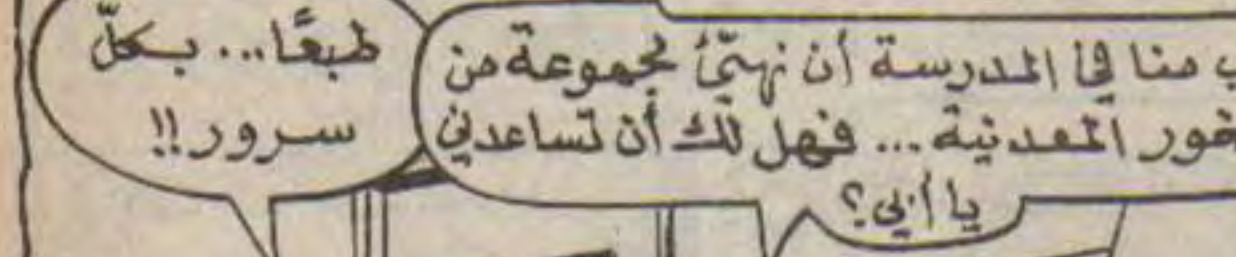 منا في المدرسة أن نهيّئ مجموعة من
المعدنية... فهل لك أن تساعدني
يا أبي؟
طبعًا... بكلّ
سرور!!